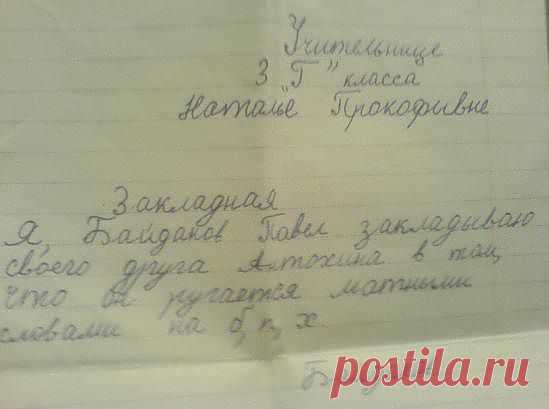 Учительнице
3 „Г” класса
Наталье Прокофивне
Закладная
Я, Байдаков Павел закладываю
своего друга Алтохина в том,
что он ругается матными
словами на б, п, х.
postila.ru